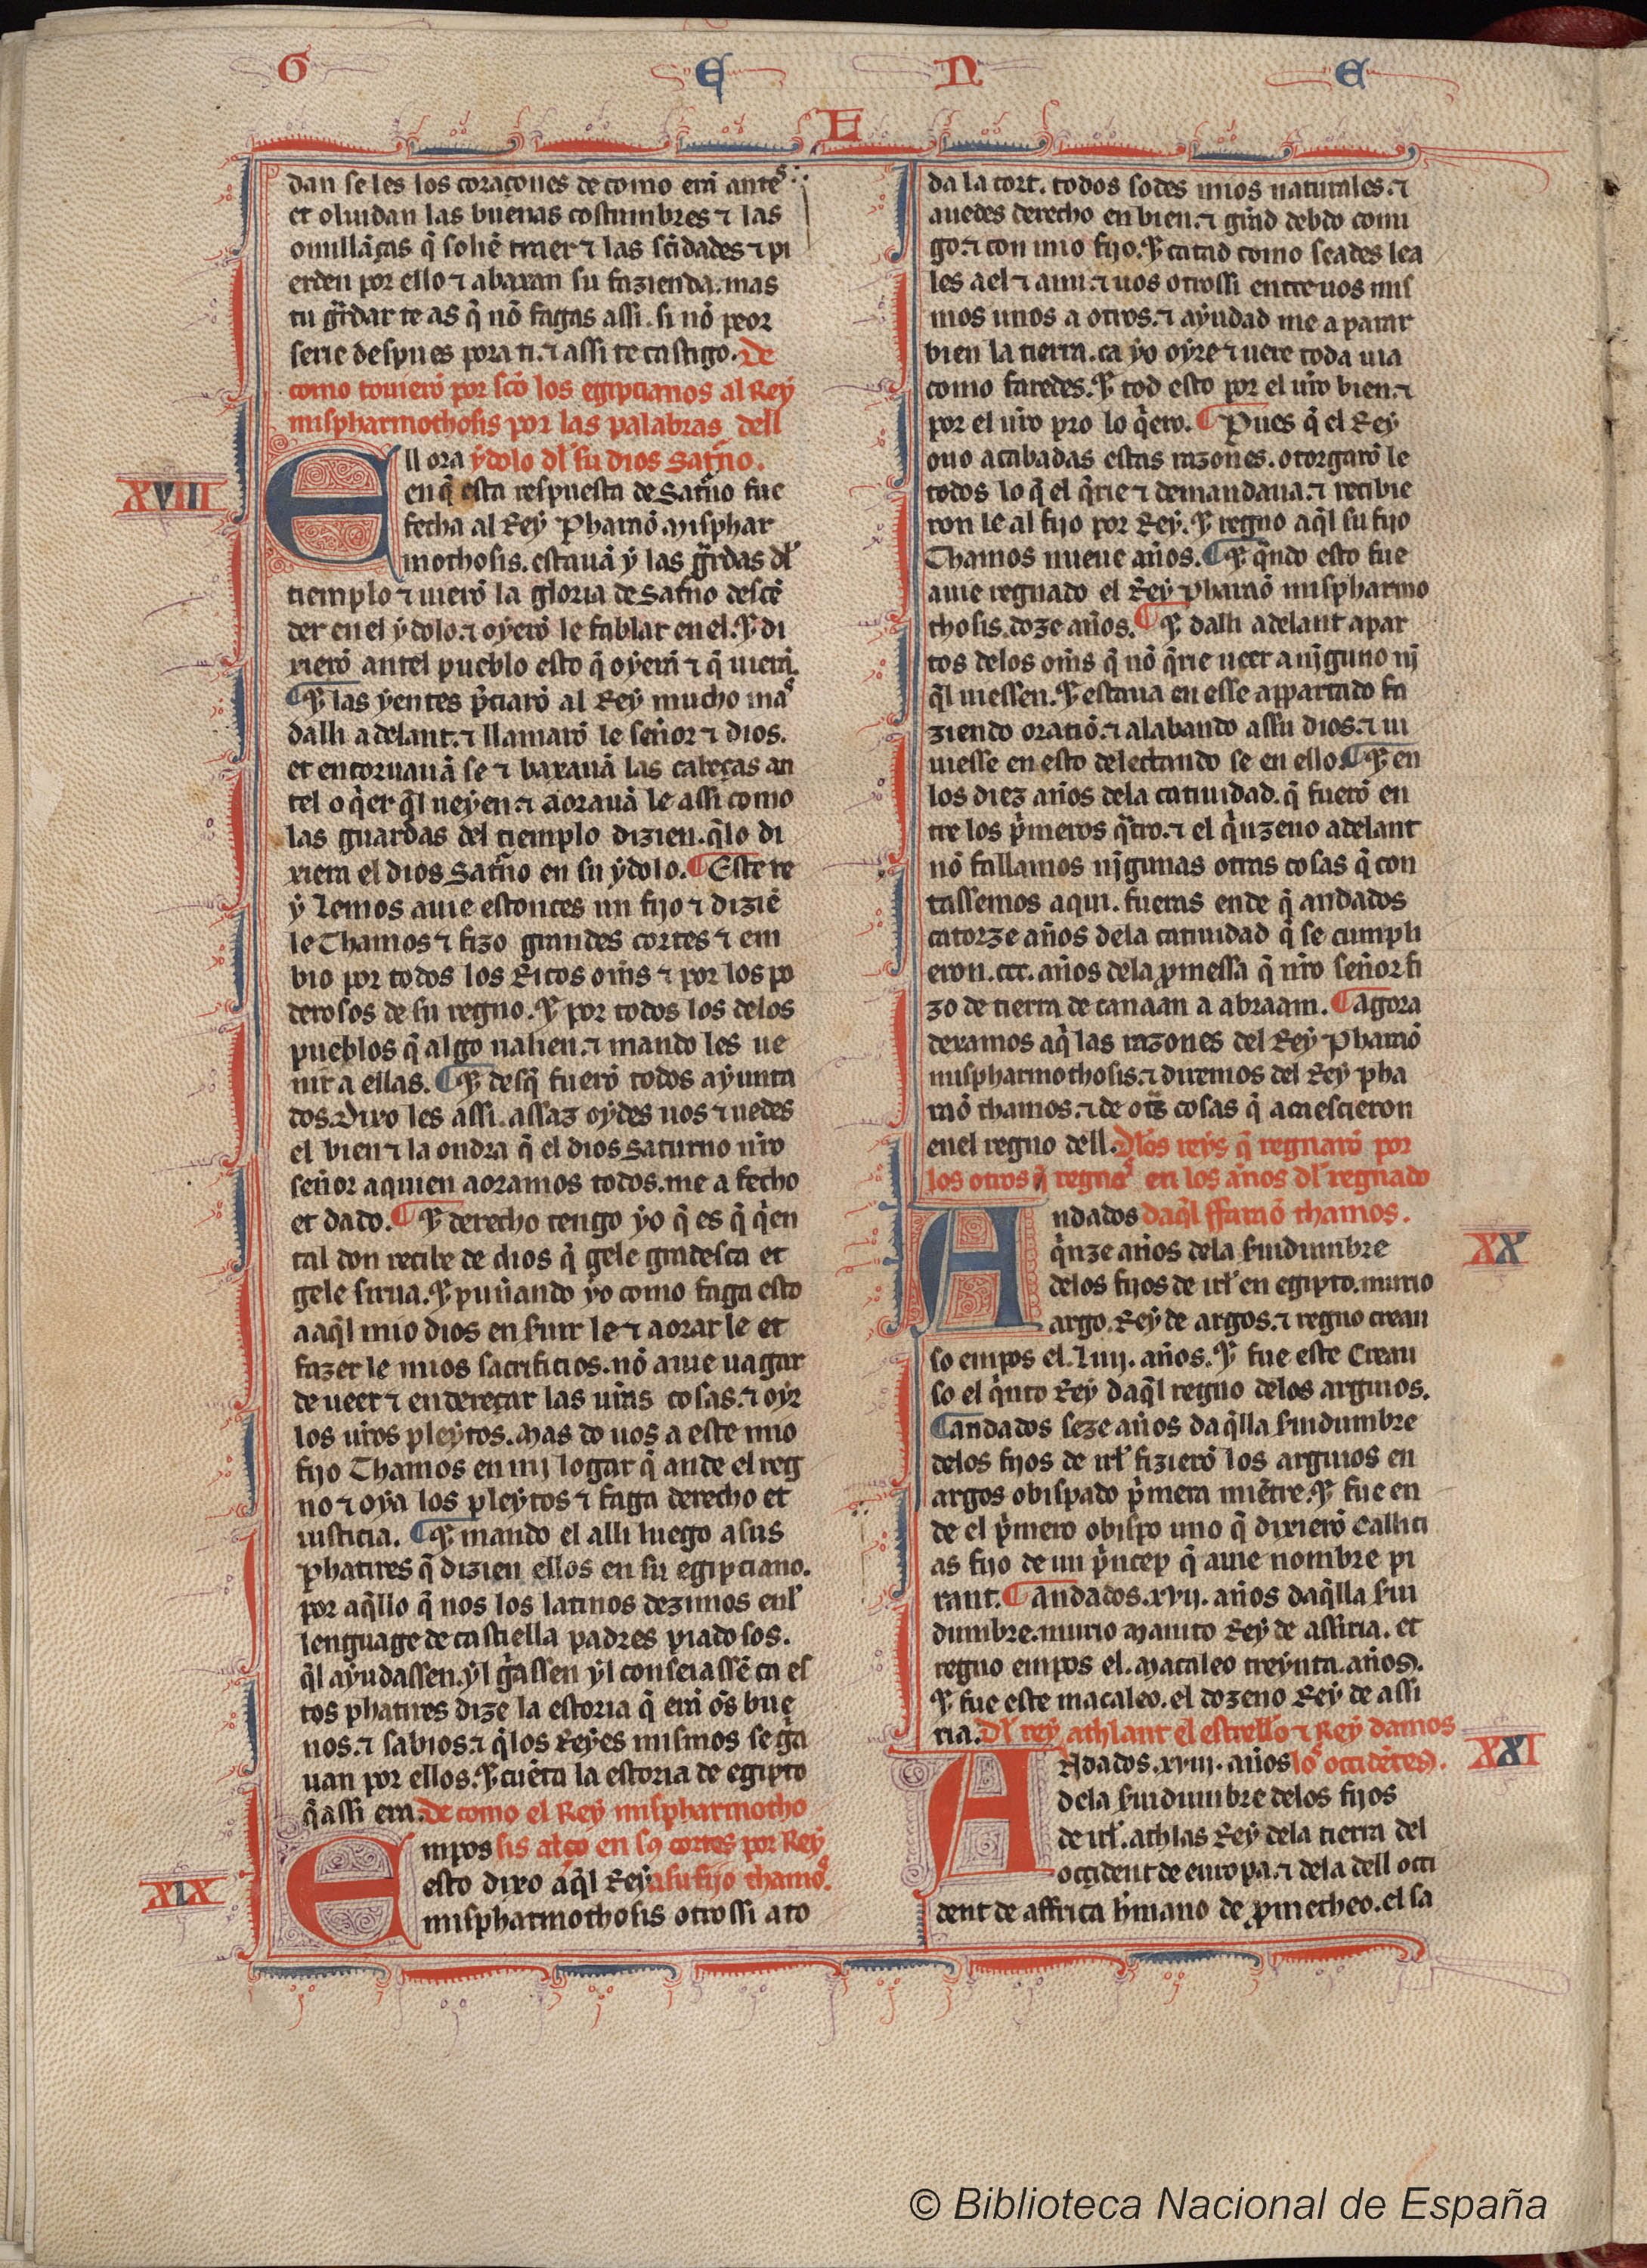 G E N E
E
dan se les los coraçones de como erã antes
et oluidan las buenas costumbres ⁊ las
omillãças q̃ soliẽ traer ⁊ las sc̃idades ⁊ pi
erden por ello ⁊ abaxan su fazienda. mas
tu gr̃dar te as q̃ nõ fagas assi. si nõ peor
serie despues pora ti. ⁊ assi te castigo. De
como touierõ por sc̃o los egiptianos al Rey
mispharmothosis por las palabras dell
XVIII
Ell ora ydolo dl̃ su dios Sat̃no.
en q̃ esta respuesta de Sat̃no fue
fecha al Rey Pharaõ Misphar
mothosis. estauã y las gr̃das dl̃
tiemplo ⁊ uierõ la gloria de Sat̃no descẽ
der en el ydolo. ⁊ oyerõ le fablar en el. Et di
xierõ antel pueblo esto q̃ oyerã ⁊ q̃ uierã.
¶ Et las yentes p̃ciarõ al Rey mucho mas
dalli adelant. ⁊ llamarõ le señor ⁊ dios.
et encoruauã se ⁊ baxauã las cabeças an
tel o q̃er q̃l ueyen. ⁊ aorauã le assi como
las guardas del tiemplo dizien. q̃lo di
xiera el dios Sat̃no en su ydolo. ¶ Este re
y Lemos auie estonces un fijo ⁊ diziẽ
le Thamos ⁊ fizo grandes cortes ⁊ em
bio por todos los Ricos om̃s ⁊ por los po
derosos de su regno. Et por todos los delos
pueblos q̃ algo ualien. ⁊ mando les ue
nir a ellas. ¶ Et desq̃ fuerõ todos ayunta
dos. Dixo les assi. assaz oydes uos ⁊ uedes
el bien ⁊ la ondra q̃ el dios Saturno nr̃o
señor aquien aoramos todos. me a fecho
et dado. ¶ Et derecho tengo yo q̃ es q̃ q̃en
tal don recibe de dios q̃ gele gradesca et
gele sirua. Et puñando yo como faga esto
a aq̃l mio dios en suir le ⁊ aorar le et
fazer le mios sacrificios. nõ auie uagar
de ueer ⁊ endereçar las ur̃as cosas. ⁊ oyr
los ur̃os pleytos. Mas do uos a este mio
fijo Thamos en mj logar q̃ ande el reg
no ⁊ oya los pleytos ⁊ faga derecho et
iusticia. ¶ Et mando el alli luego a sus
phatires q̃ dizien ellos en su egiptiano.
por aq̃llo q̃ nos los latinos dezimos enl̃
lenguage de castiella padres piadosos.
q̃l ayudassen. yl g̃assen yl conseiassẽ ca es
tos phatires dize la estoria q̃ erã õs bue
nos. ⁊ sabios. ⁊ q̃los Reyes mismos se g̃a
uan por ellos. Et cuẽta la estoria de egipto
q̃ assi era. De como el Rey mispharmotho
XIX
Empos sis alço en sꝯ cortes por Rey
esto dixo aq̃l Rey a su fijo thamos.
mispharmothosis otrossi a to
da la cort. todos sodes mios naturales. ⁊
auedes derecho en bien. ⁊ grãd debdo comi
go. ⁊ con mio fijo. Et catad como seades lea
les a el ⁊ a mi. ⁊ uos otrossi entre uos mis
mos unos a otros. ⁊ ayudad me a parar
bien la tierra. ca yo oyre ⁊ uere toda uia
como faredes. Et tod esto por el ur̃o bien. ⁊
por el ur̃o pro lo q̃ero. ¶ Pues q̃ el Rey
ouo acabadas estas razones. otorgarõ le
todos lo q̃ el q̃rie ⁊ demandaua. ⁊ recibie
ron le al fijo por Rey. Et regno aq̃l su fijo
Thamos nueue años. ¶ Et q̃ndo esto fue
auie regnado el Rey Pharaõ mispharmo
thosis. doze años. ¶ Et dalli adelant apar
tos delos om̃s q̃ nõ q̃rie ueer a nj̃guno nj̃
q̃l uiessen. Et estaua en esse appartado fa
ziendo oratiõ. ⁊ alabando assu dios. ⁊ ui
uiesse en esto delectando se en ello. ¶ Et en
los diez años dela catiuidad. q̃ fuerõ en
tre los p̃meros q̃tro. ⁊ el q̃nzeno adelant
nõ fallamos nj̃gunas otras cosas q̃ con
tassemos aqui. fueras ende q̃ andados
catorze años dela catiuidad q̃ se cumpli
eron. ccc. años dela p̃messa q̃ nr̃o señor fi
zo de tierra de canaan a abraam. ¶ Agora
dexamos aq̃ las razones del Rey Pharaõ
mispharmothosis. ⁊ diremos del Rey pha
raõ thamos. ⁊ de ot̃s cosas q̃ acaescieron
enel regno dell. Dl̃os reys q̃ regnarõ por
los otros regnos en los años dl̃ regnado
XX
Andados daq̃l ffaraõ thamos.
q̃nze años dela suidumbre
delos fijos de irl̃ en egipto. murio
argo. Rey de argos. ⁊ regno creau
so empos el. Liiij. años. Et fue este Creau
so el q̃nto Rey daq̃l regno delos argiuos.
¶ Andados seze años daq̃lla suidumbre
delos fijos de irl̃ fizierõ los argiuos en
argos obispado p̃mera miẽtre. Et fue en
de el p̃mero obispo uno q̃ dixierõ Callici
as fijo de un p̃ncep q̃ auie nombre pi
rant. ¶ Andados. xvij. años daq̃lla sui
dumbre. murio Manito Rey de assiria. et
regno empos el. Macaleo treynta. años.
Et fue este macaleo. el dozeno Rey de assi
ria. Dl̃ rey athlant el estrellero ⁊ Rey damos
XXI
ANdados. xviij. años los occidẽtes.
dela suidumbre delos fijos
de irl̃. athlas Rey dela tierra del
occident de europa. ⁊ dela dell occi
dent de affrica h̃mano de p̃metheo. el sa
© Biblioteca Nacional de España